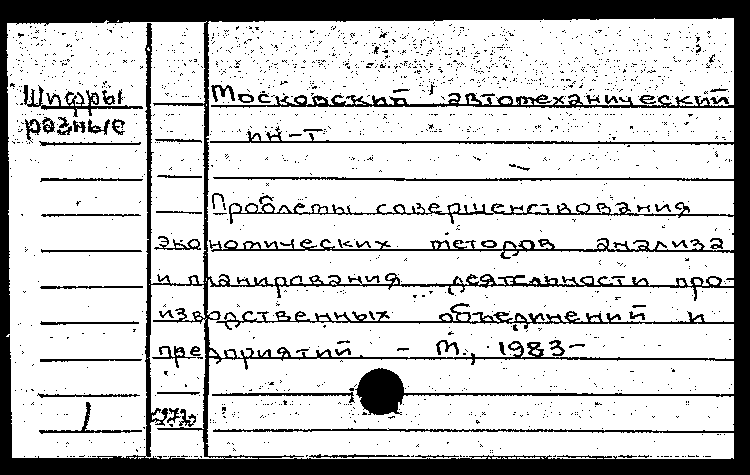 Шифры
разные
Московский автомеханический
ин-т.
Проблемы совершенствования
экономических методов анализа
и планирования деятельности про-
изводственных объединений и
предприятий. - М., 1983-